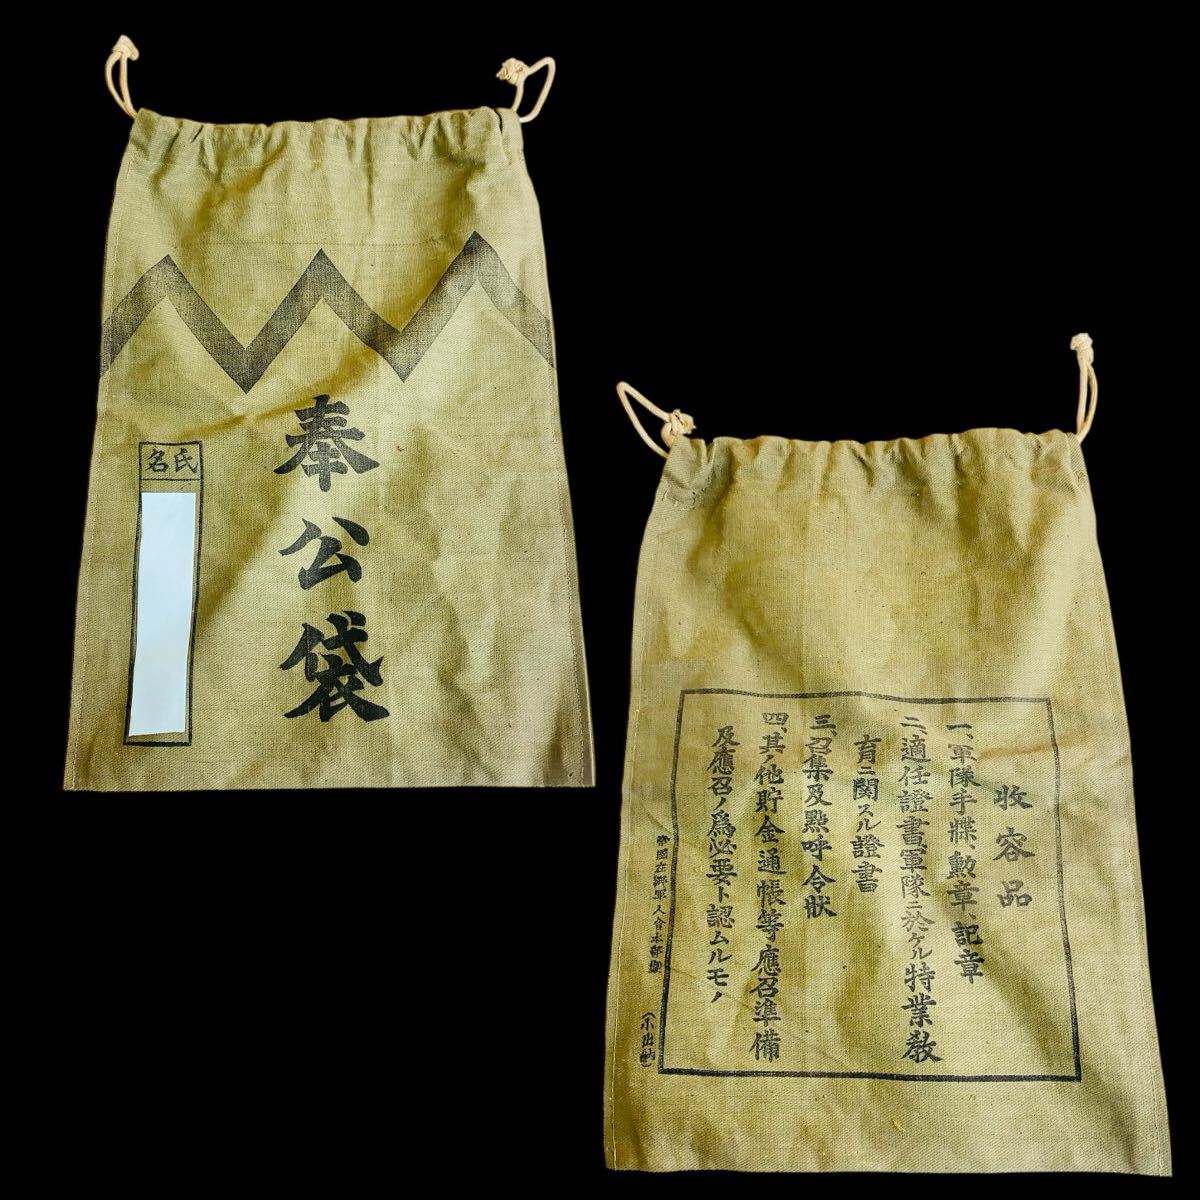 奉公袋
氏名
收容品
一、軍隊手牒、勲章、記章
二、適任證書、軍隊ニ於ケル特業敎
育ニ関スル證書
三、召集及點呼令狀
四、其ノ他貯金通帳等應召準備
及應召ノ爲必要ト認ムルモノ
帝國在郷軍人會本部製